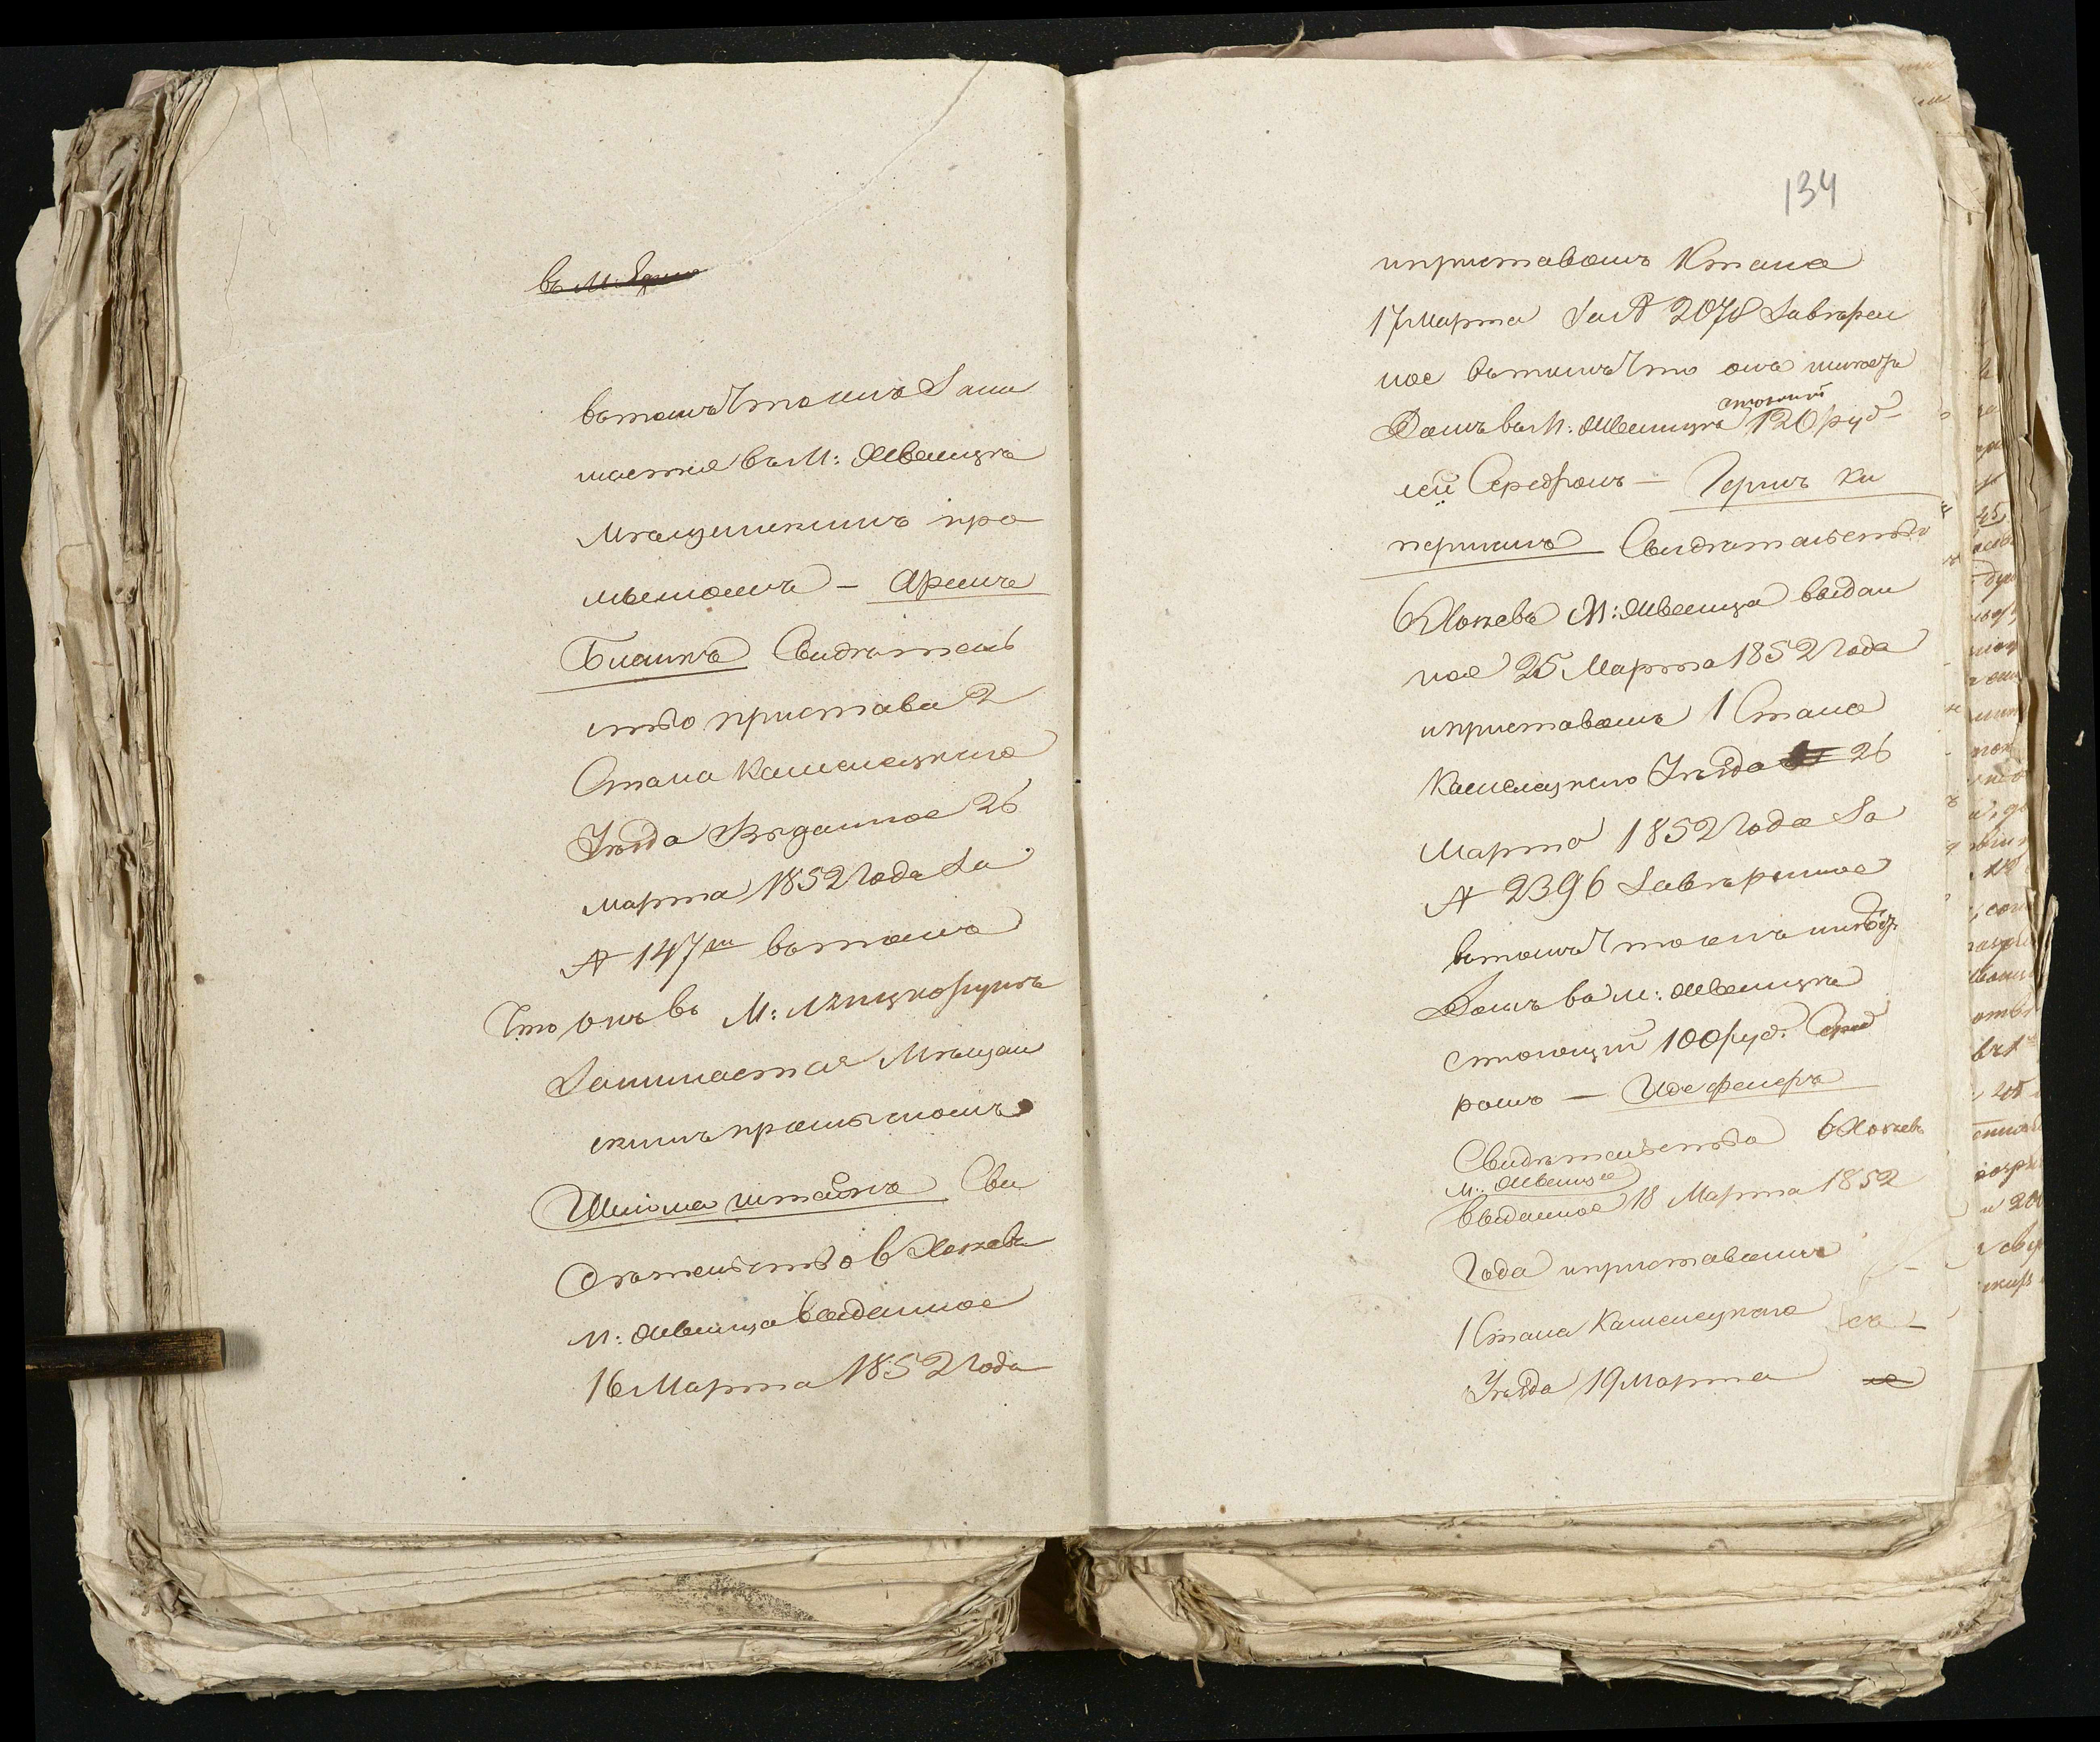 въ М.
въ томъ что онъ Зани
мается въ М: Жванцѣ
Мѣщанскимъ про
мысломъ – Аронъ
Бланкъ Свидѣтель
ство пристава 2
Стана Каменецкаго
Уѣзда Выданное 26
марта 1852 года За
№ 147м въ томъ
Что онъ въ М:
Занимается Мѣщан
скимъ промысломъ
Шлиома штейнъ Сви
дѣтельство 6 Хозяевъ
М: Жванца выданное
16 Марта 1852 года
134
и приставомъ 1 Стана
17 Марта За № 2078 Завѣрен
ное въ томъ что онъ имѣетъ
стоющій
Домъ въ М: Жванцѣ 120 руб
лей Серебромъ – Гершъ Ки
перманъ Свидѣтельство
6 Хозяевъ М: Жванца выдан
ное 25 Марта 1852 года
и приставомъ 1 Стана
Каменецкаго Уѣзда 26
Марта 1852 года За
№ 2396 Завѣренное
въ томъ что онъ имѣетъ
Домъ въ М: Жванцѣ
стоющій 100 руб. Сереб
ромъ –
Свидѣтельство 6 Хозяевъ
М: Жванца
выданное 18 Марта 1852
Года и приставомъ
1 Стана Каменецкаго
Уѣзда 19 Марта